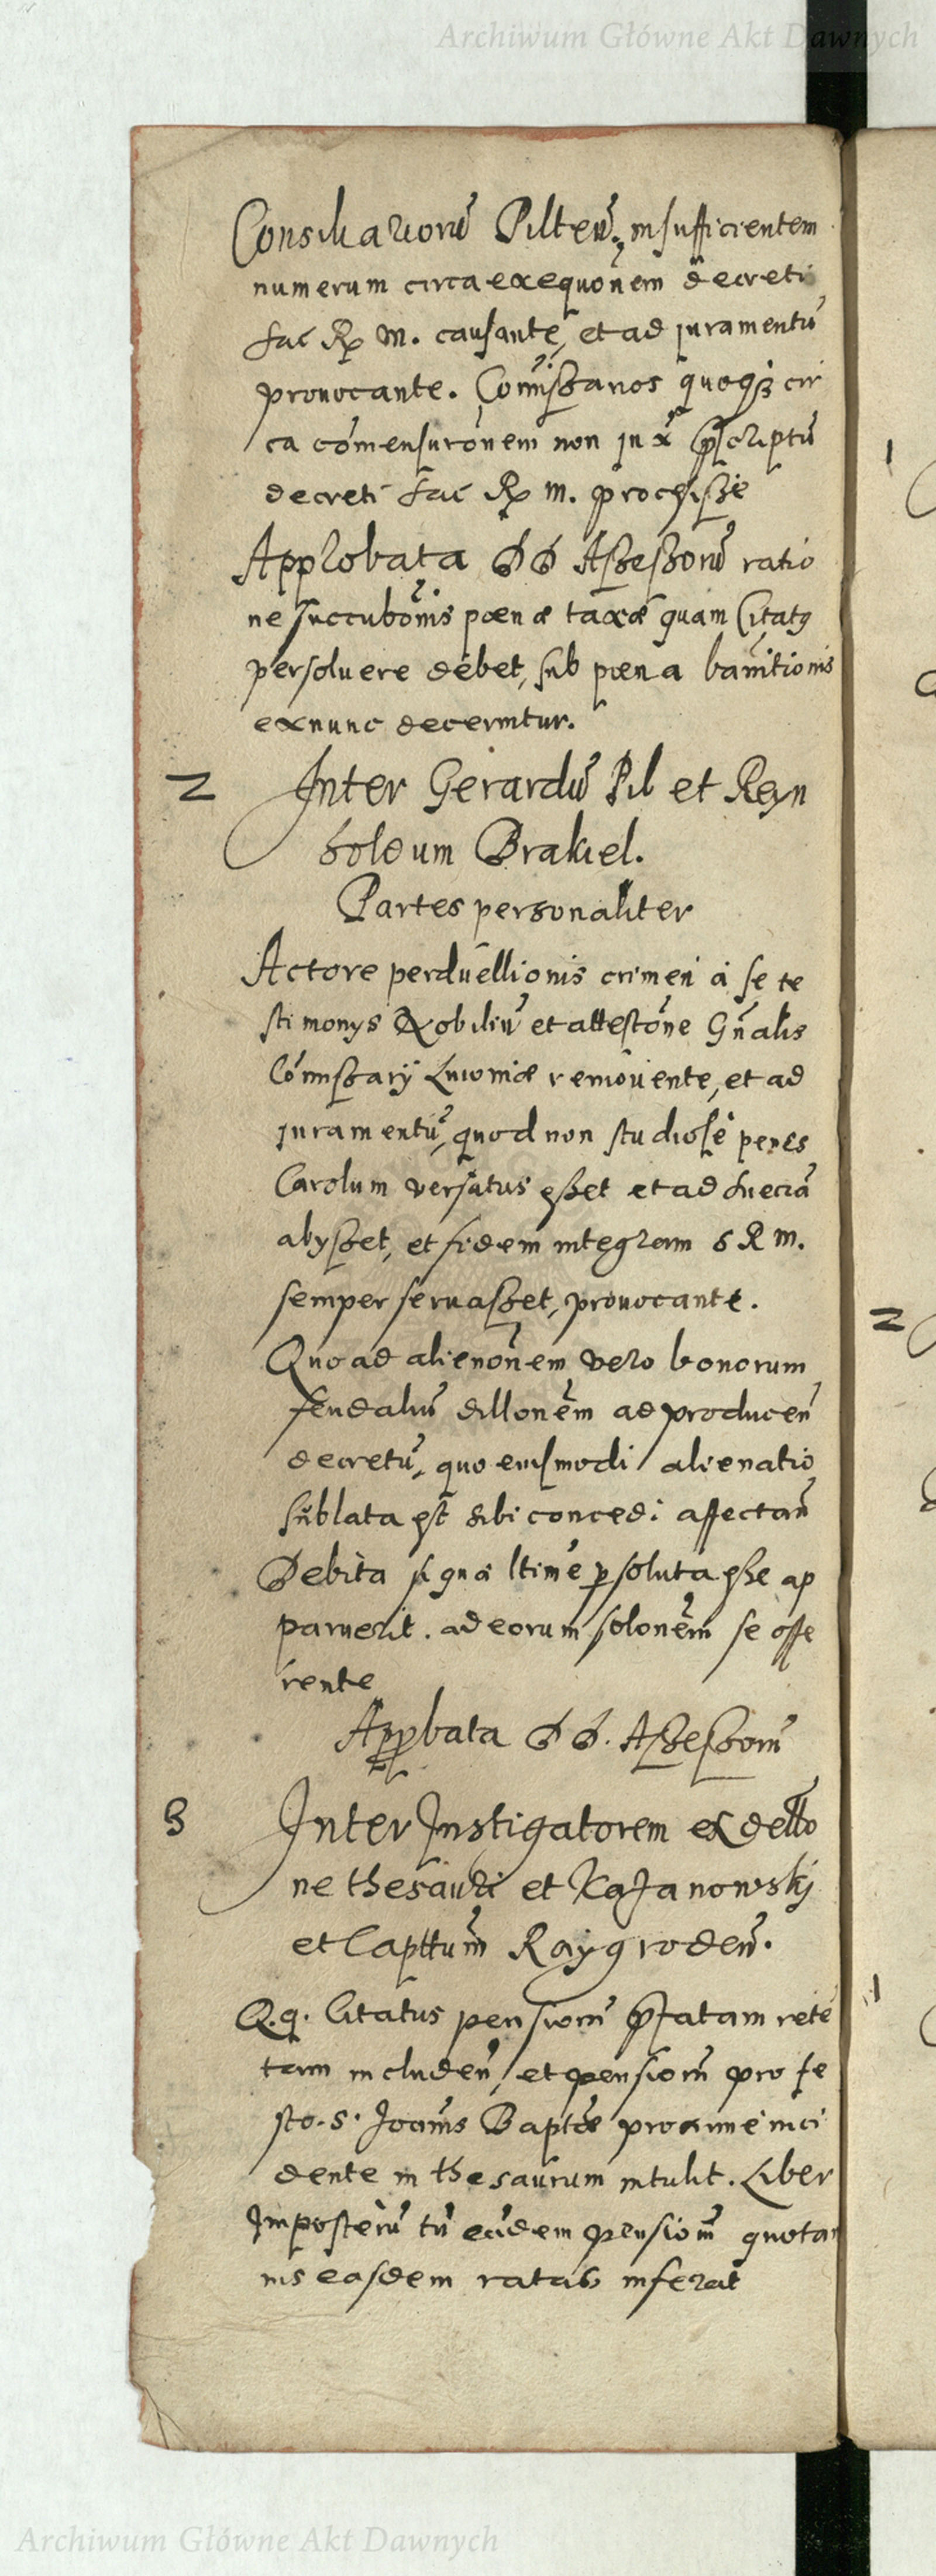 Archiwum Główne Akt Dawnych
Consiliarioru Pilten. insufficientem
numerum circa exequonem decreti
Sac R. M. causante, et ad juramentu
provocante. Comissarios quoq cir
ca comensuronem non juxa pscriptu
decreti Sac R. M. processisse
Approbata SS Assessoru ratio
ne succubonis poenæ taxæ quam Citatq
persoluere debet, sub poena banitionis
exnunc decernitur.
2 Inter Gerardu Pil et Reyn
holdum Brakiel.
Partes personaliter
Actore perduellionis crimen a se te
stimonys Nobiliu et attestone Gnalis
Comissarij Liuoniæ remouente, et ad
juramentu, quod non studiose penes
Carolum versatus esset et ad Sueciã
abysset, et fidem integram S R M.
semper seruasset, prouocante.
Quo ad alienonem vero bonorum
feudaliu dillonem ad producen
decretu, quo eiusmodi alienatio
sublata est sibi concedi affectan
Debita si qua ltime psoluta esse ap
paruerit. ad eorum solonem se offe
rente
Appbata SS. Assessorum
3 Inter Instigatorem ex dello
ne thesauri et Kazanowskj
et Capttum Raygroden.
Q.q. Citatus pensiom pfatam rete
tam includen, et pensiom pro fe
sto. S. Joanis Baptæ proxime inci
dente in thesaurum intulit. Liber
Imposteru tn eãdem pensiom quotan
nis easdem ratas inferat
Archiwum Główne Akt Dawnych